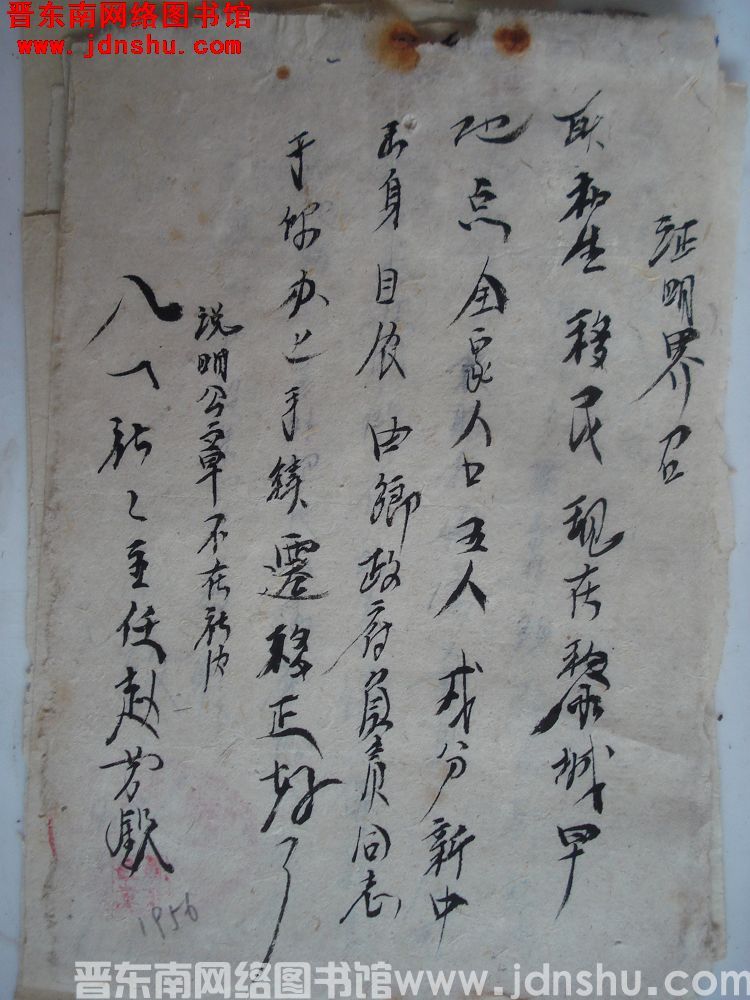 晋东南网络图书馆
www.jdnshu.com
证明界召
生移民现在黎城早
地点全家人口五人成分新中
出身自农由乡政府负责同志
手办之手续迁移正好了
说明公章不在社内
八一社之主任赵
1956
晋东南网络图书馆www.jdnshu.com